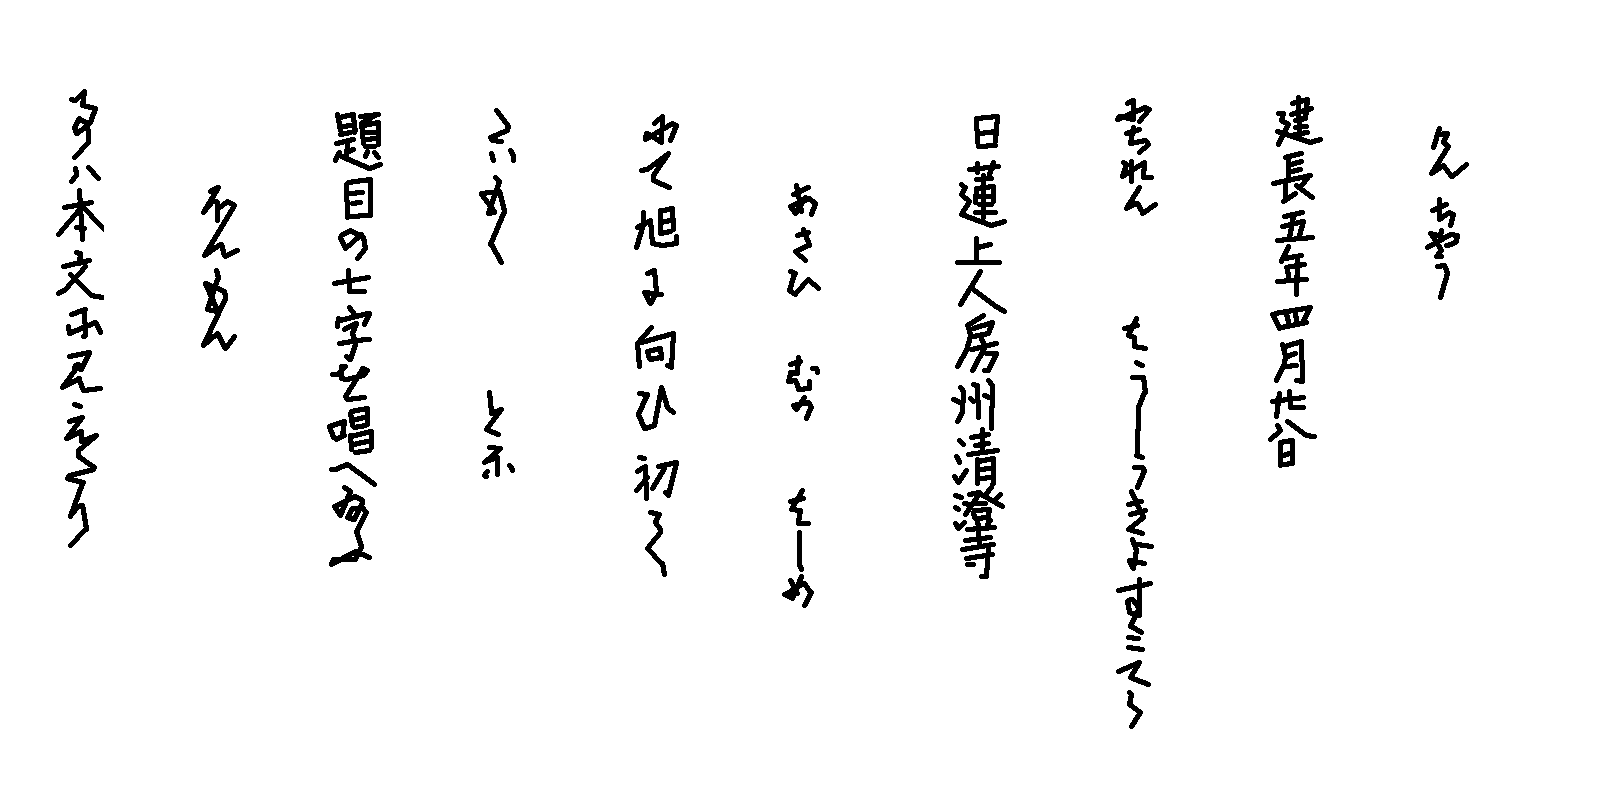 けんちやう
建長五年四月廿八日
にちれん はうしうきよすミてら
日蓮上人房州清澄寺
あさひ むか はしめ
にて旭に向ひ初て
たいもく とな
題目の七字を唱へ給ふ
ほんもん
事ハ本文に見えたり